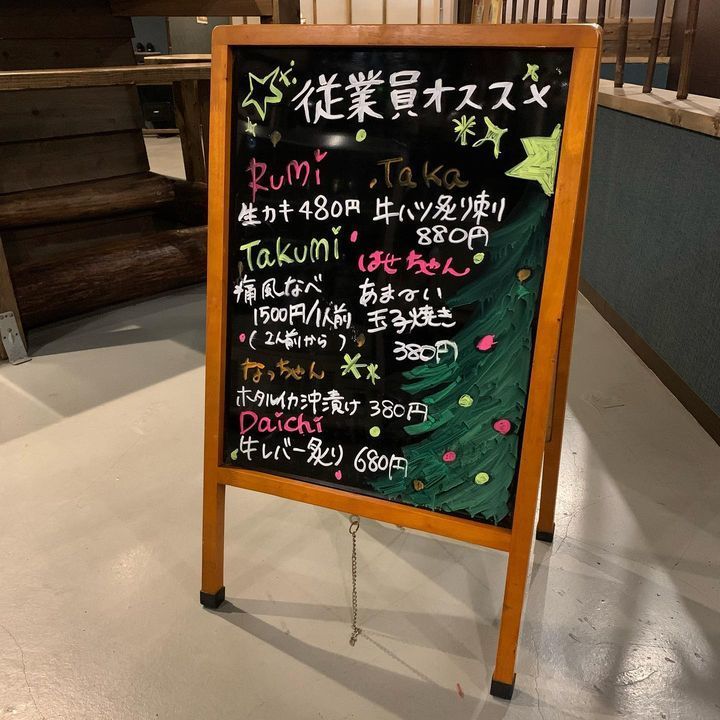 従業員オススメ
Rumi
生カキ 480円
Taka
牛ハツ炙り刺り
880円
Takumi
痛風なべ
1500円/1人前
(2人前から)
はせちゃん
あま~い
玉子焼き
380円
なっちゃん
ホタルイカ沖漬け 380円
Daichi
牛レバー炙り 680円